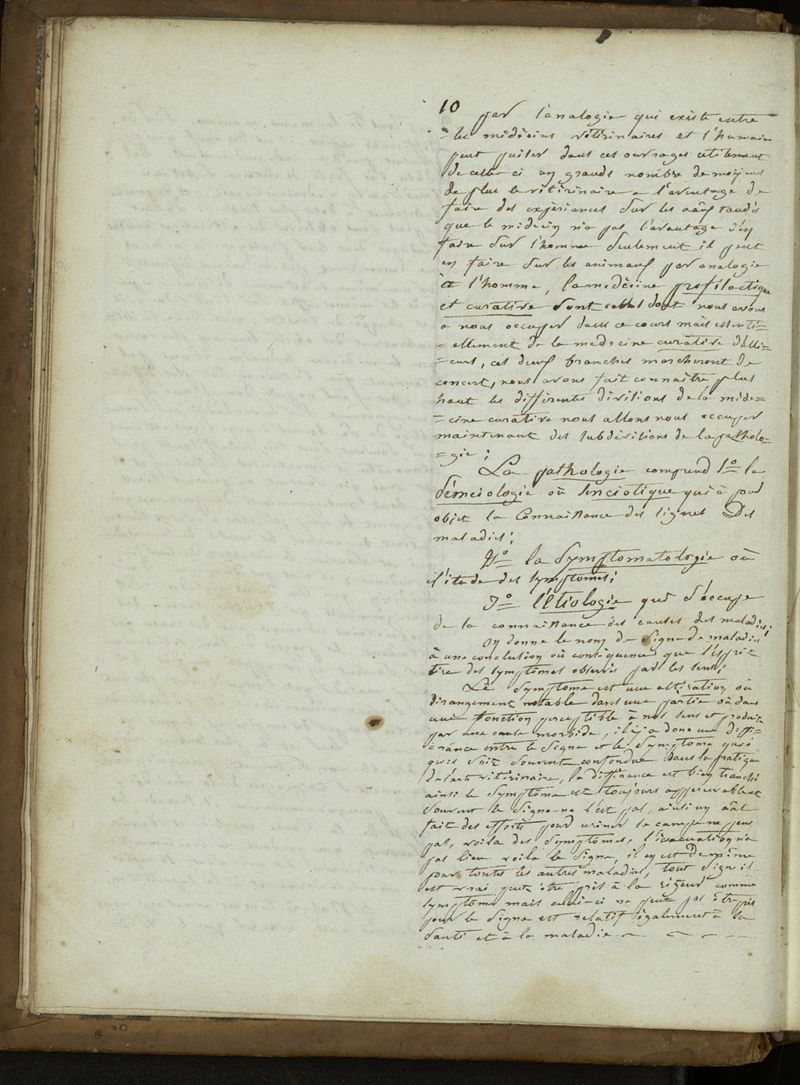 10
par l'analogie qui existe entre
les médecins vétérinaires et l'humain
peut puiser dans ces ouvrages utilement
de celle ci un grands nombre de moyens
de plus le vétérinaire a l'aventage de
faire des expériances sur les aâux tandis
que le médecin n'a pas l'avantage d'en
faire sur l'homme seulement il peut
en faire sur les animaux par analogie
à l'homme, la médecine profilactique
et curative sont celles dont nous avons
a nous occuper dans ce cours mais essenti=
=ellement de la médecine curative d'alli=
=eurs, ces deux branches marcheront de
concert, nous avons fait connaître plus
haut les différentes divisions de la méde=
=cine curative nous allons nous occuper
maintenant des subdivisions de la patholo=
=gie;
La pathologie comprend 1º la
Sémeiologie où Sinciotique qui à pour
objet la Connaissance des signes Des
maladies;
2º la Symptomatologie où
l'étude des symptomes;
3º l'Etiologie qui s'occupe
de la connaissance des causes des maladies;
On donne le nom de Signe de maladies
à une conclution où conséquence que l'esprit
tire des symptômes observés par les sens;
Le Symptome est une altération où
dérangement notable dans une partie où dans
une fonction perceptible à nos sens et produit
par une cause morbide, il y a donc une diffe=
=rance entre le signe et le Symptome quoi
qu'es soit souvent confondue dans la pratique
de l'art vétérinaire, la différance est bien tranché
ainsi le Symptôme est toujours appercevable et
souvent le signe ne l'est pas, ainsi un aâl
fait des efforts pour uriner se campe ne peut
pas, voila des Symptomes, l'évacuation n'a
pas lieu voila le Signe, il en est De même
pour toutes les autres maladies, tout signe il
est vrai peut être pris à la rigeur comme
symptome mais celui-ci ne peut pas être pris
pour le signe est relatif également à la
Santé et à la maladie